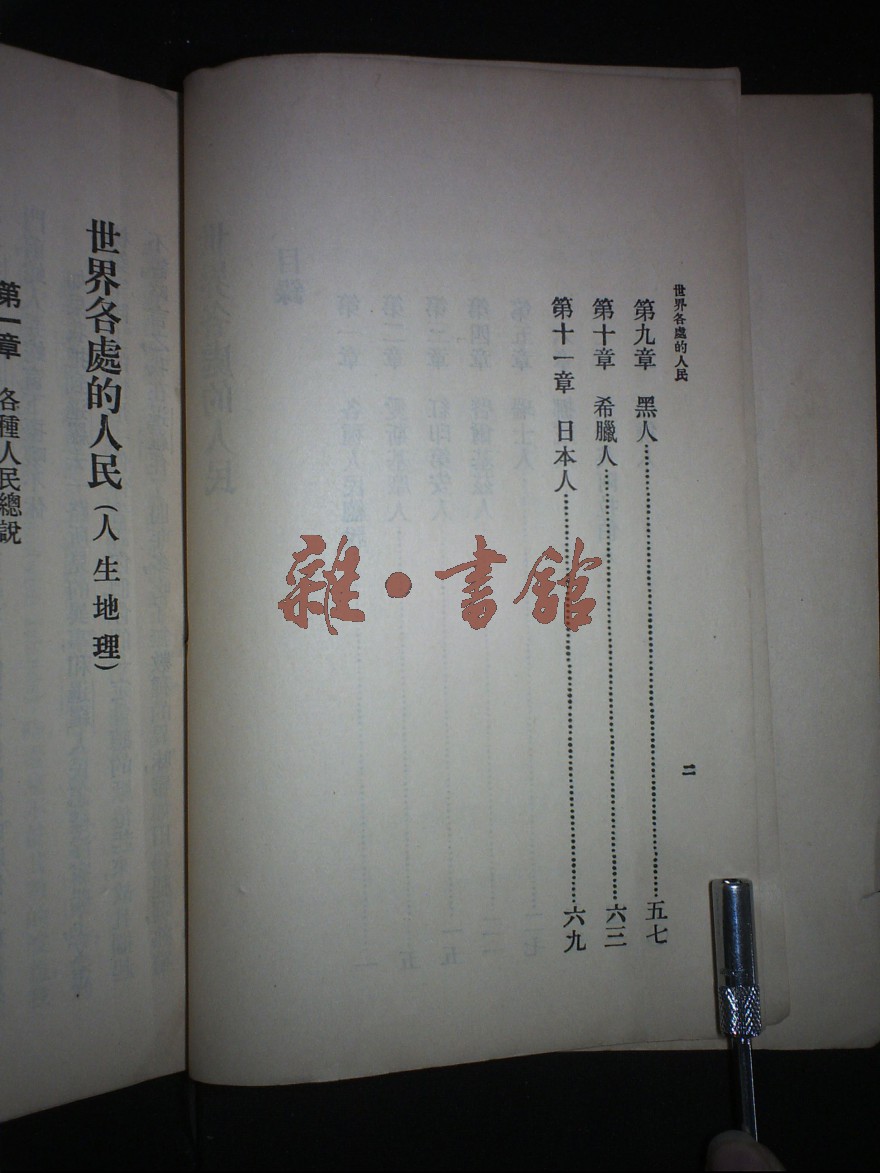 世界各處的人民
二
第九章　黑人……五七
第十章　希臘人……六三
第十一章　日本人……六九
雜·書館
世界各處的人民（人生地理）
第一章　各種人民總說